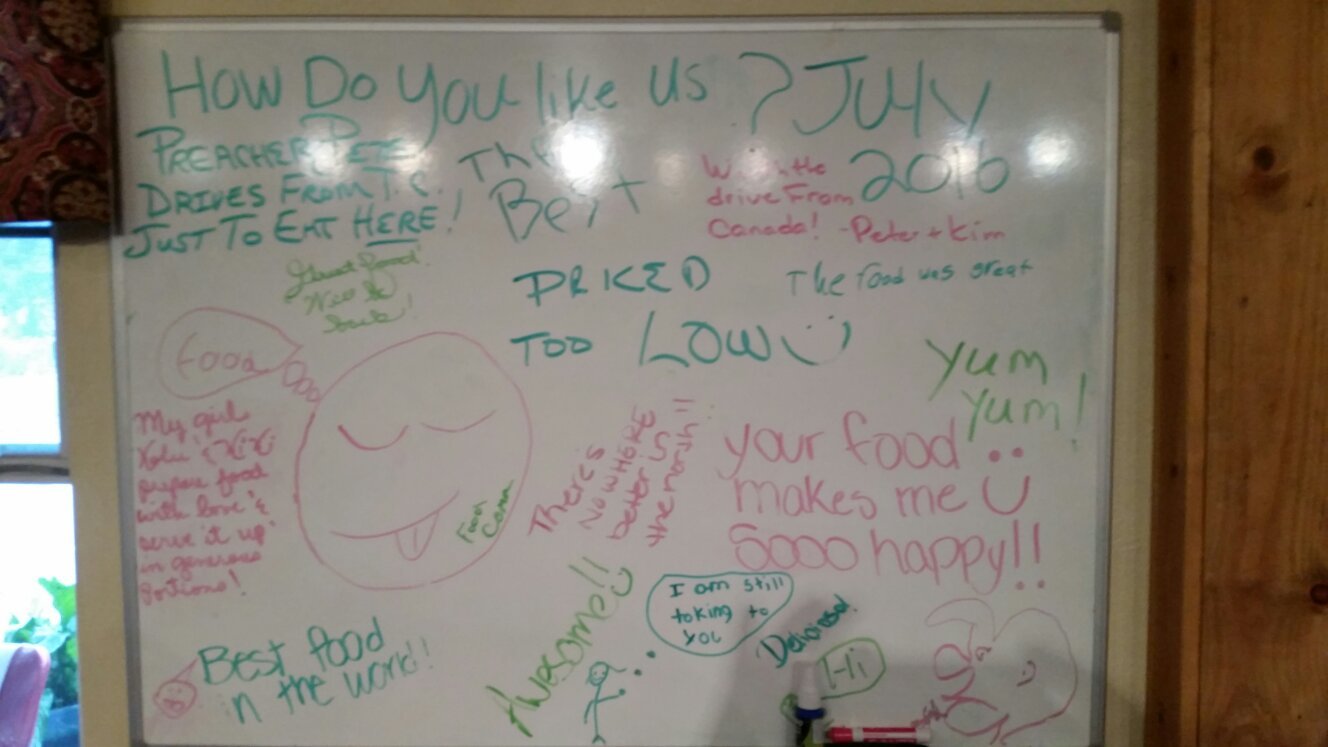 How Do You like us ? July
2016
PREACHER PETE
DRIVES FROM T.C.
JUST TO EAT HERE!
The
Best
the
drive From
Canada! -Peter + Kim
Great food!
Nice &
PRICED
TOO LOW
The food was great
Yum
Yum!
Food
My girl
prepare food
with love &
serve it up
in generous
Potions!
Food
Coma
There's
NOWHERE
better in
the north!!
your food
makes me
Sooo happy!!
Awesome!!
I am still
toking to
you
Delicioso!
Hi
Best food
in the world!!